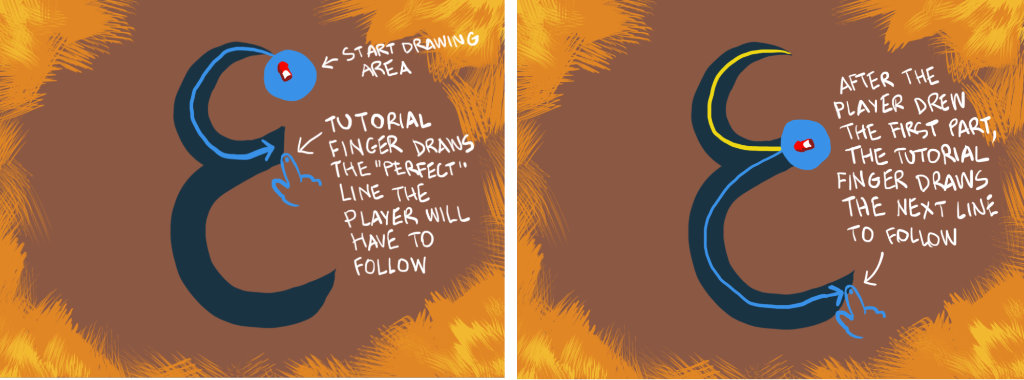 START DRAWING
AREA
TUTORIAL
FINGER DRAWS
THE "PERFECT"
LINE THE
PLAYER WILL
HAVE TO
FOLLOW
ع
AFTER THE
PLAYER DREW
THE FIRST PART,
THE TUTORIAL
FINGER DRAWS
THE NEXT LINE
TO FOLLOW
ع